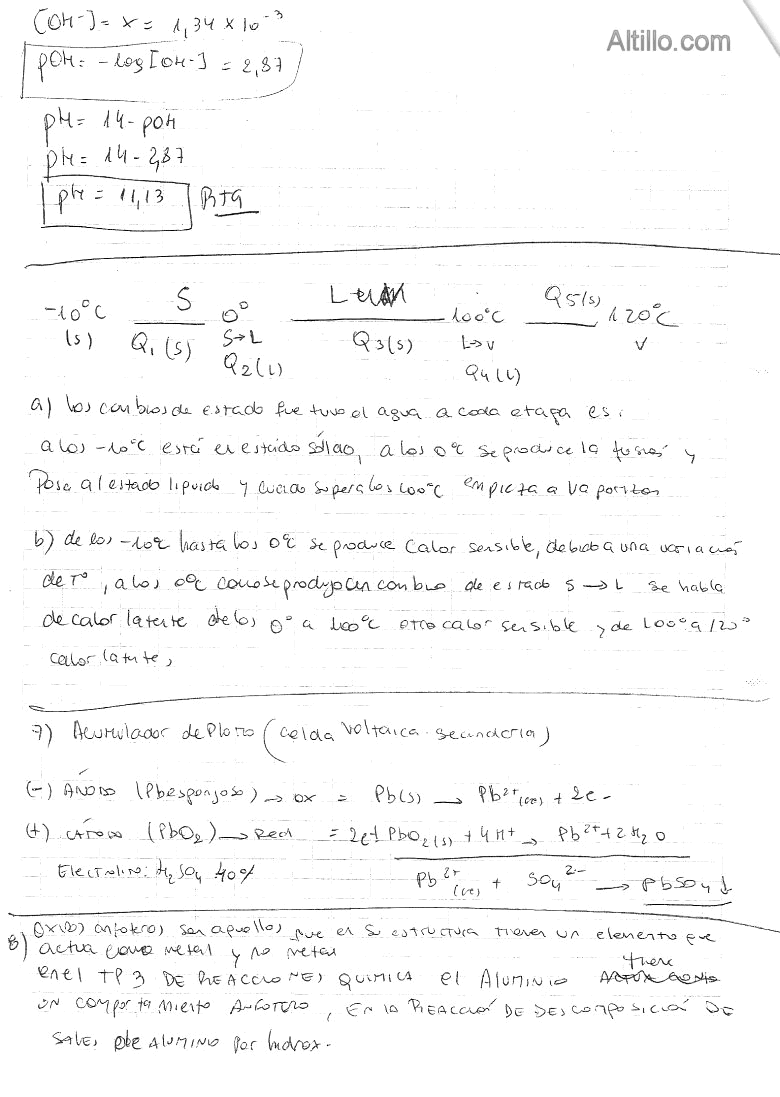 [OH-] = x = 1,34 x 10⁻³
Altillo.com
pOH = -log[OH-] = 2,87
pH = 14 - pOH
pH = 14 - 2,87
pH = 11,13 Rta
-10°C S 0° L 100°C Q5(s) 120°C
(s) Q1(s) S→L Q3(s) L→V V
Q2(L) Q4(L)
a) los cambios de estado que tuvo el agua a cada etapa es:
a los -10°C está en estado sólido, a los 0°C se produce la fusión y
Pasa al estado liquido y cuando supera los 100°C empieza a vaporizar
b) de los -10°C hasta los 0°C se produce Calor sensible, debido a una variación
de T°, a los 0°C como se produjo un cambio de estado S → L se habla
de calor latente de los 0° a 100°C otro calor sensible y de 100° a 120°
calor latente,
7) Acumulador de Plomo (celda Voltaica secundaria)
(-) ÁNODO (Pb esponjoso) → ox = Pb(s) → Pb²⁺(ac) + 2e-
(+) CÁTODO (PbO₂) → Red = 2e+ PbO₂(s) + 4H⁺ → Pb²⁺ + 2H₂O
Electrolito: H₂SO₄ 40% Pb²⁺(ac) + SO₄²⁻ → PbSO₄↓
8) Oxidos anfoteros son aquellos que en su estructura tienen un elemento que
actua como metal y no metal
en el TP 3 DE REACCIONES QUIMICA el Aluminio tiene
un comportamiento Anfotero, EN LA REACCIÓN DE DESCOMPOSICIÓN DE
Sales de ALUMINIO por hidrox.